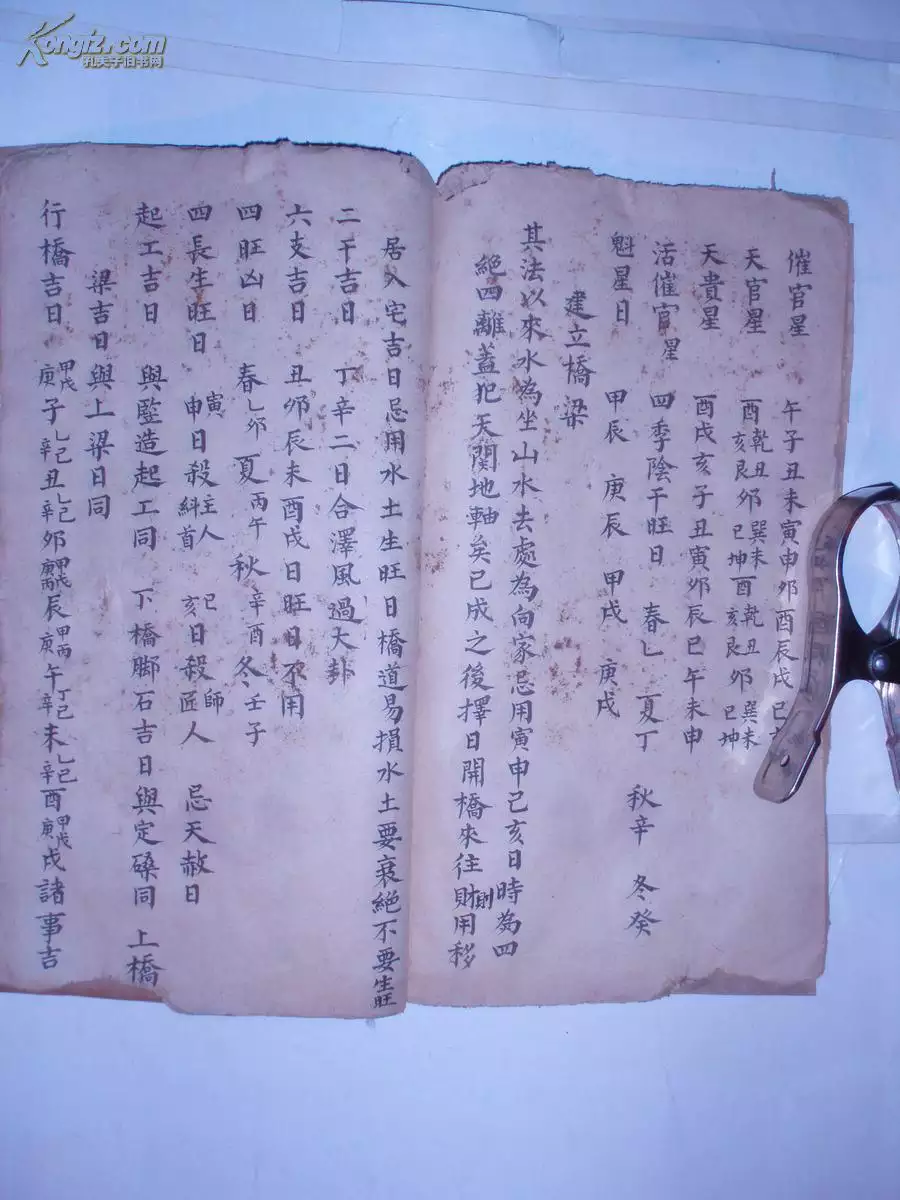 Kongfz.com
孔夫子旧书网
催官星 午子丑未寅申卯酉辰戌巳
天官星 酉乾亥丑艮卯巽巳未坤酉乾亥丑艮卯巽巳未坤
天貴星 酉戌亥子丑寅卯辰巳午未申
活催官星 四季陰干旺日 春乙 夏丁 秋辛 冬癸
魁星日 甲辰 庚辰 甲戌 庚戌
建立橋梁
其法以來水為坐山水去處為向家忌用寅申巳亥日時為四
絕四離蓋犯天関地軸矣已成之後擇日開橋來往則財用移
居入宅吉日忌用水土生旺日橋道易損水土要衰絕不要生旺
二干吉日 丁辛二日合澤風過大卦
六支吉日 丑卯辰未酉戌日旺日不用
四旺凶日 春乙卯 夏丙午 秋辛酉 冬壬子
四長生旺日 寅申日殺主人糾首 巳亥日殺師匠人 忌天赦日
起工吉日 與豎造起工同 下橋脚石吉日與定磉同 上橋
梁吉日與上梁日同
行橋吉日 甲戌庚子乙己辛丑乙己辛卯甲戊丙庚辰甲丙庚午丁己辛未乙己辛酉甲戊庚戌諸事吉